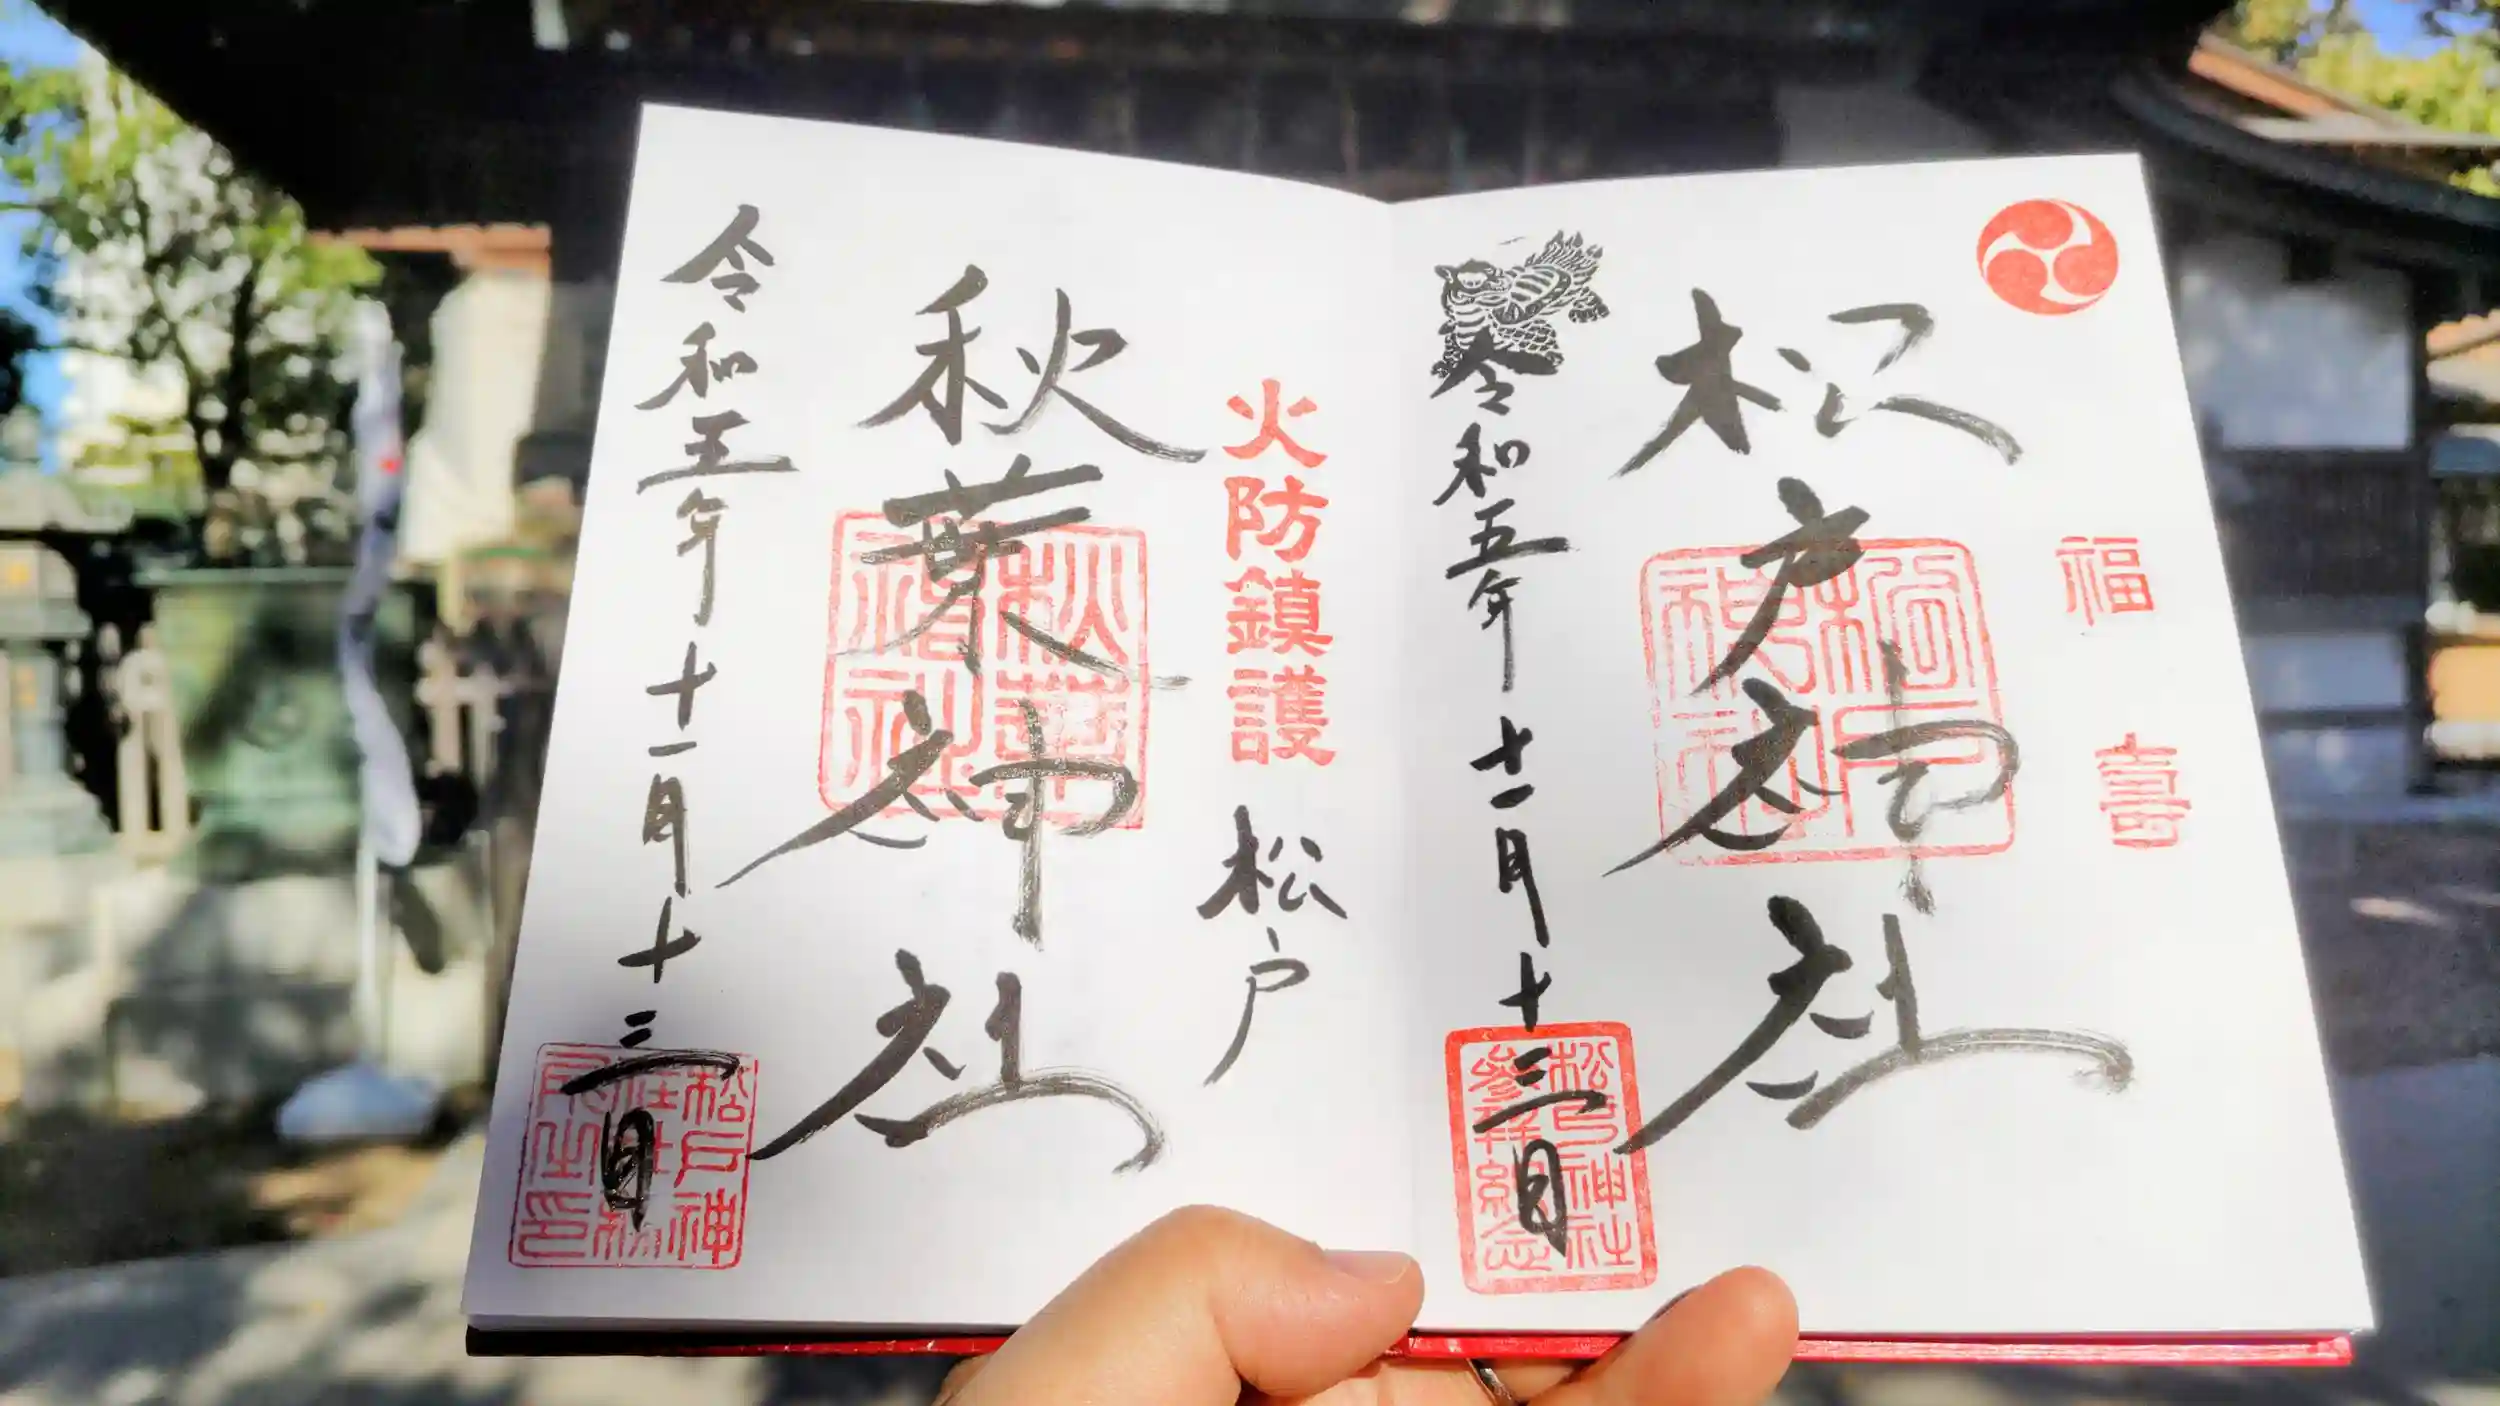 福寿
松戸神社
松戸神社
令和五年十一月十三日
松戸神社
参拝紀念
火防鎮護
松戸
秋葉神社
秋葉神社
令和五年十一月十三日